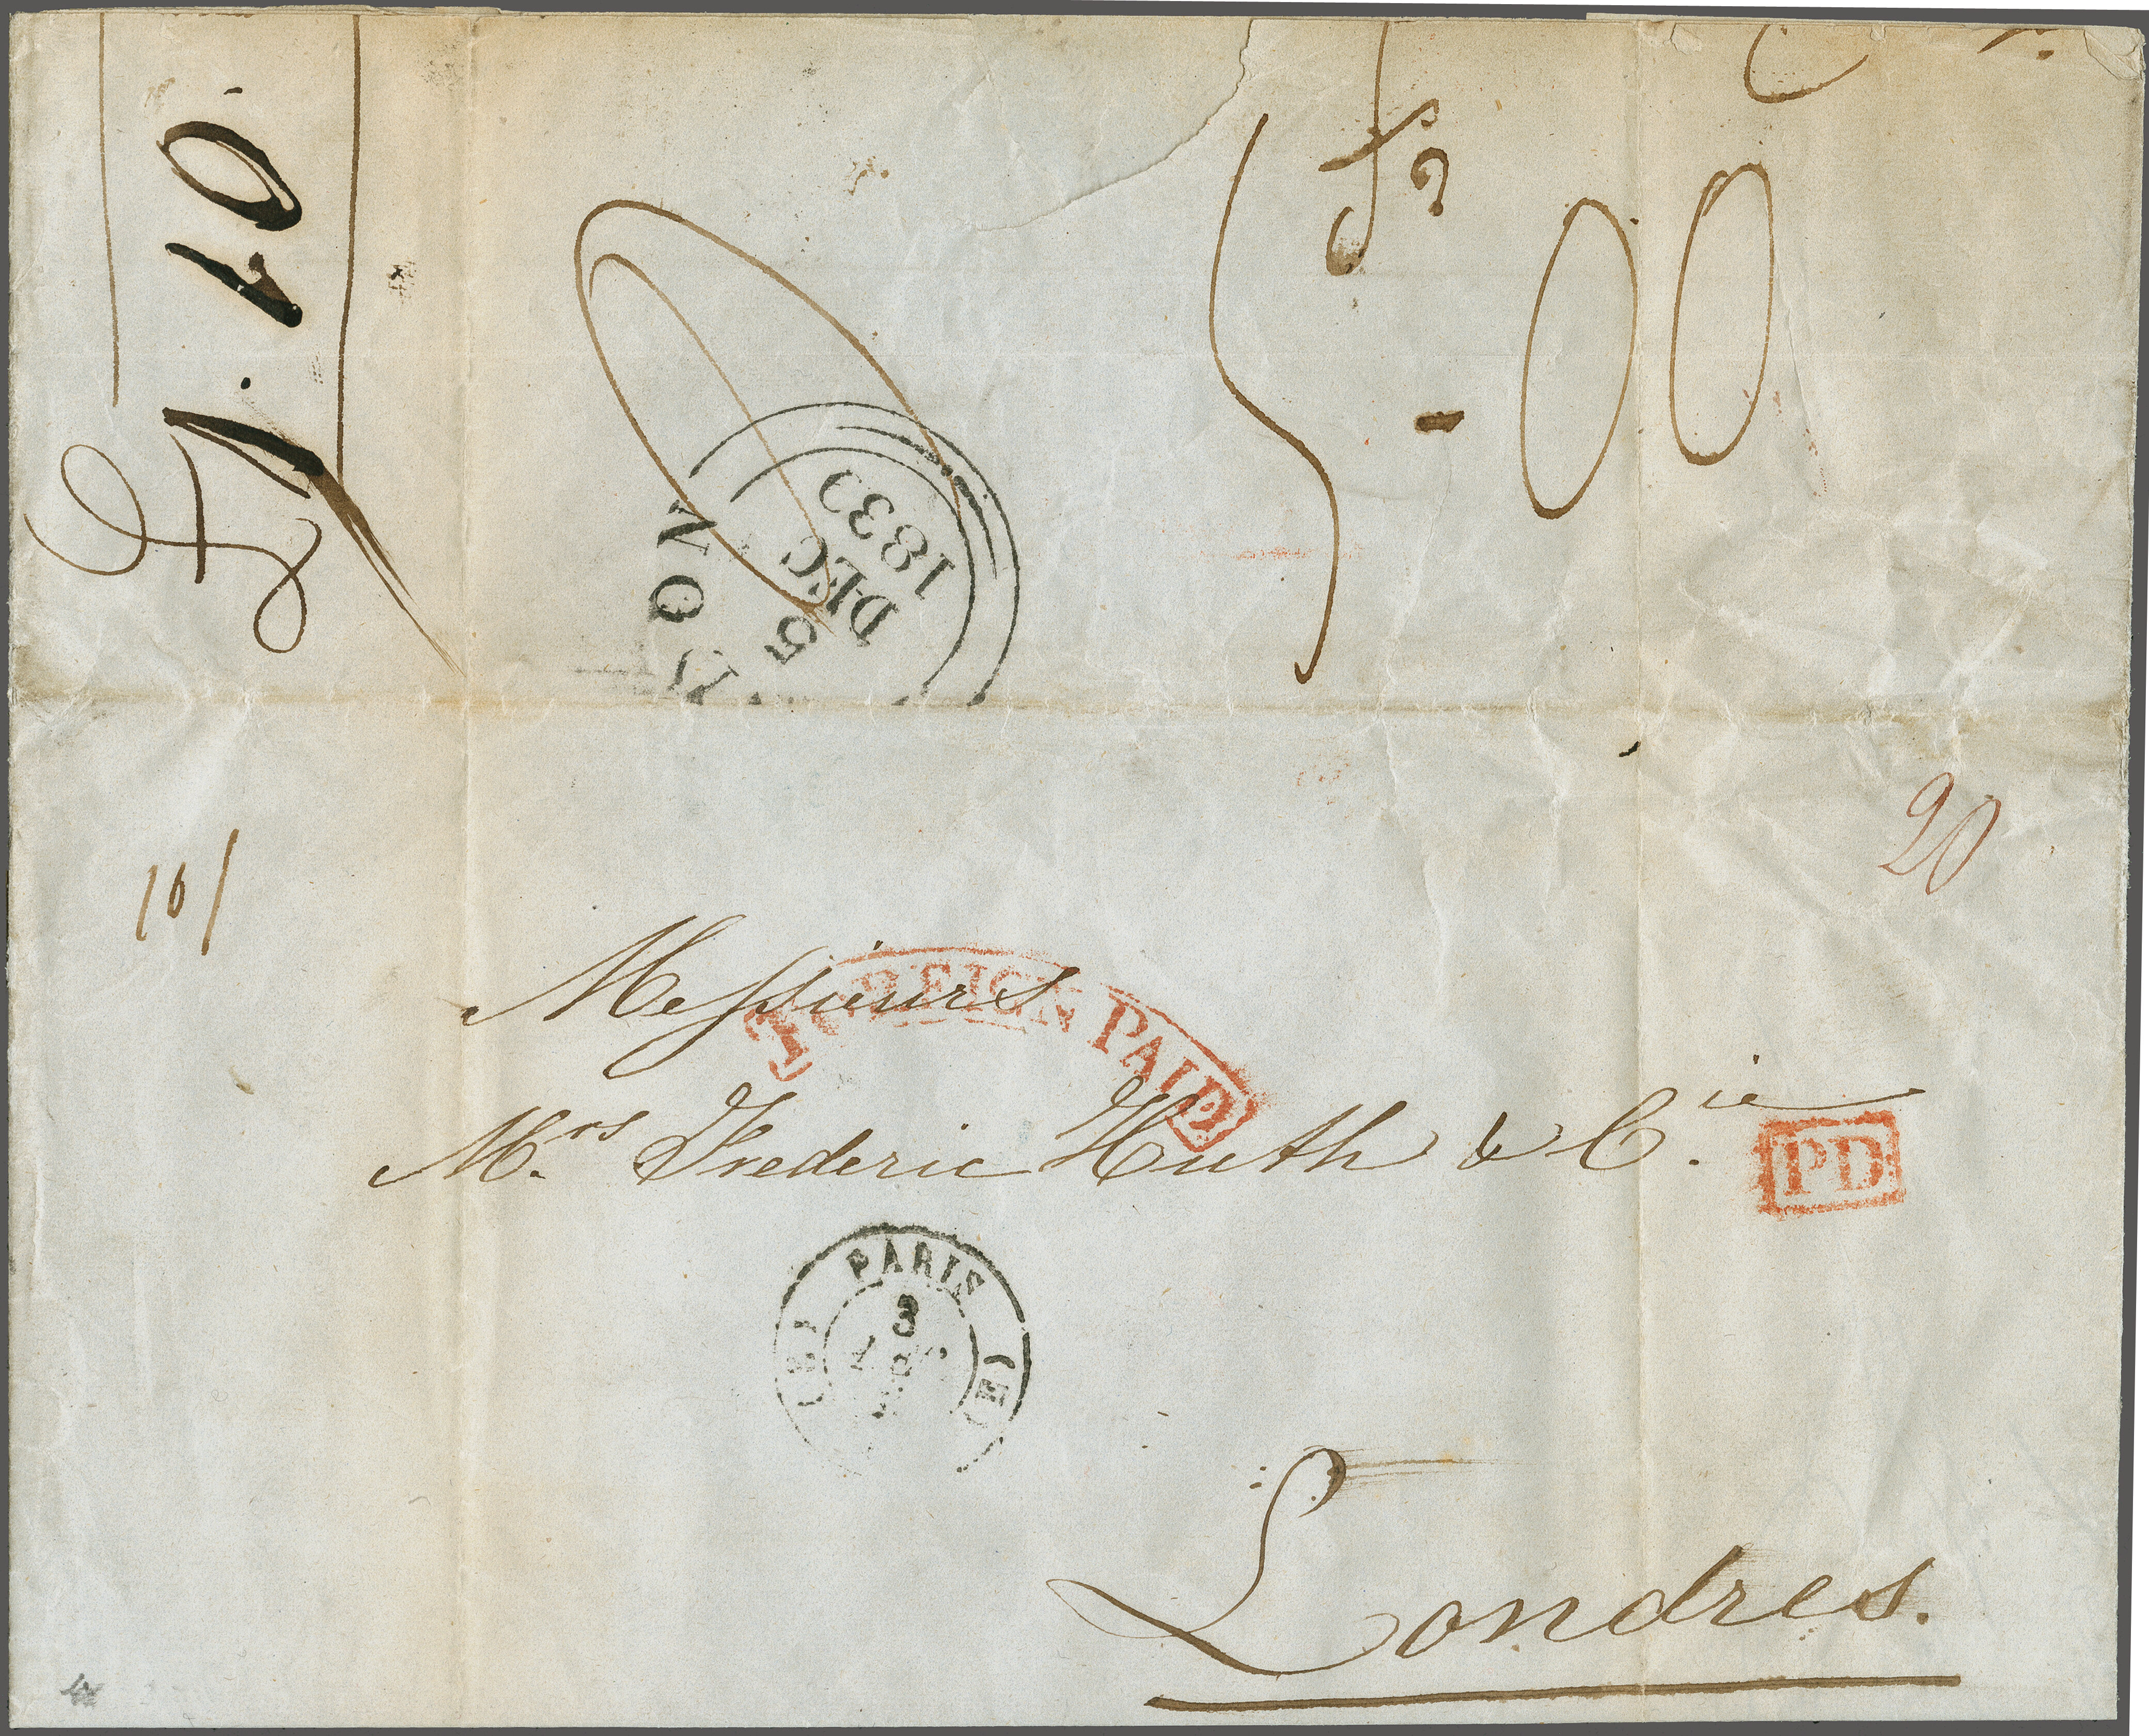 £1.10.
5-00
5
DEC
183
10/
20
Messieurs
FOREIGN PAID
M.rs Frederic Huth & C.ie
PD
PARIS
3
Londres.